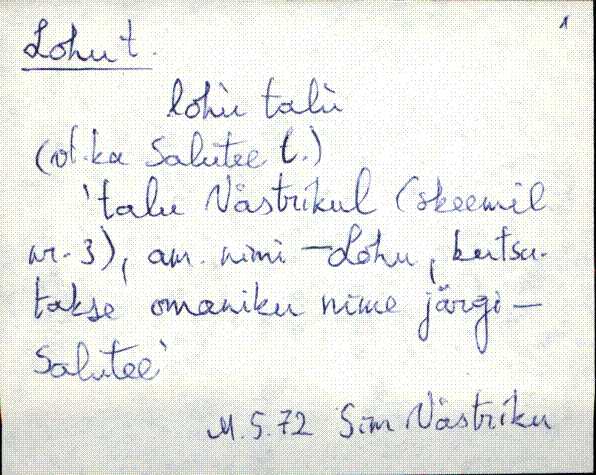 1
Lohu t.
lohù talù
(vt. ka Salutee t.)
'talu Västrikul (skeemil
nr. 3), am. nimi – Lohu, kutsu-
takse omaniku nime järgi –
Salutee'
M.S. 72 Sim Västriku